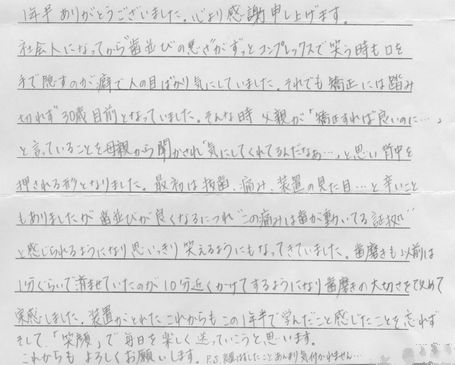 1年半ありがとうございました。心より感謝申し上げます。
社会人になってから"歯並びの悪さ"がずっとコンプレックスで笑う時も口を
手で隠すのが癖で人の目ばかり気にしていました。それでも矯正には踏み
切れず30歳目前となっていました。そんな時父親が「矯正すれば良いのに…」
と言っていることを母親から聞かされ"気にしてくれてるんだなぁ…"と思い背中を
押される形となりました。最初は抜歯、痛み、装置の見た目…と辛いこと
もありましたが歯並びが良くなるにつれ"この痛みは歯が動いてる証拠!!"
と感じられるようになり思いっきり笑えるようにもなってきていました。歯磨きも以前は
1分ぐらいで済ませていたのが10分近くかけてするようになり歯磨きの大切さを改めて
実感しました。装置がとれたこれからもこの1年半で学んだこと感じたことを忘れず
そして、「笑顔」で毎日を楽しく送っていこうと思います。
これからもよろしくお願いします。P.S.